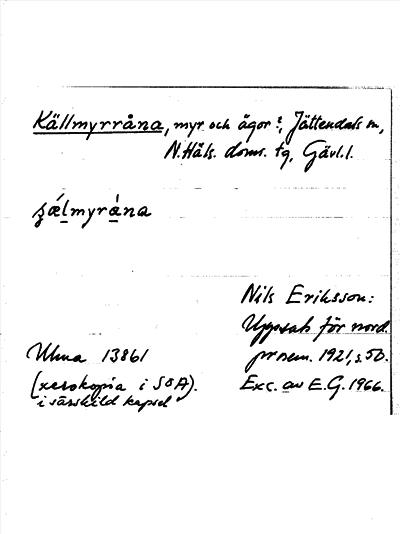 Källmyrråna, myr och ägor?, Jättendals sn,
N.Häls. doms. tg, Gävl.l.
s̨æ̀lmyrána
Nils Eriksson:
Uppsats för nord.
prosem. 1921, s. 50.
Exc. av E.G. 1966.
Ulma 13861
(xerokopia i SOA).
i särskild kapsel